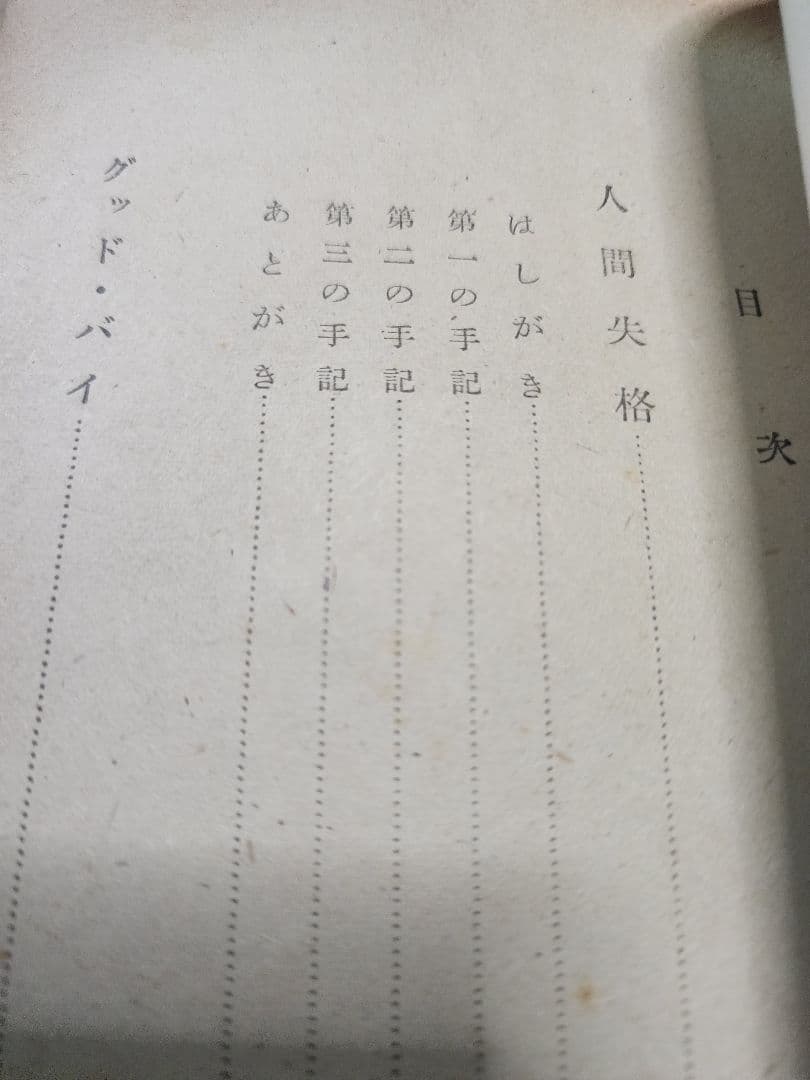 目次
人間失格
はしがき
第一の手記
第二の手記
第三の手記
あとがき
グッド・バイ